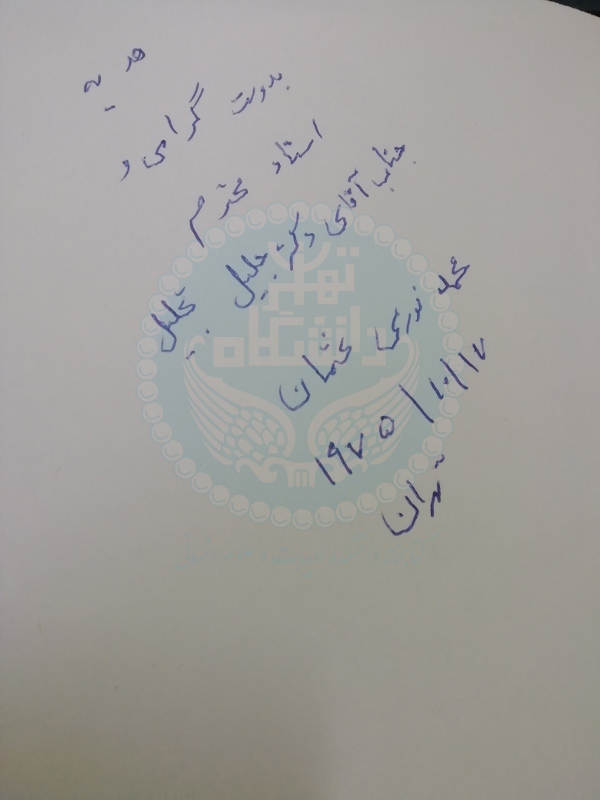 هدیه
بدوست گرامی و
استاد محترم
جناب آقای دکتر جلیل تجلیل
محمد نوری عثمان
۱۹۷۵/۱۰/۱۷
تهران
دانشگاه
تهران